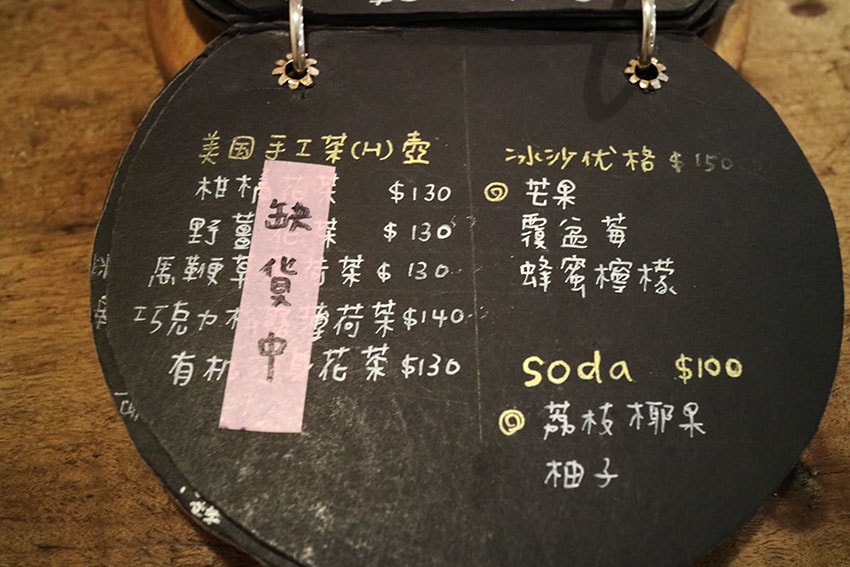 美国手工茶(H)壺
柑橘花茶 $130
野薑花茶 $130
馬鞭草 荷茶 $130
巧克力 薄荷茶 $140
有机 花茶 $130
缺貨中
冰沙优格 $150
芒果
覆盆莓
蜂蜜檸檬
soda $100
荔枝椰果
柚子